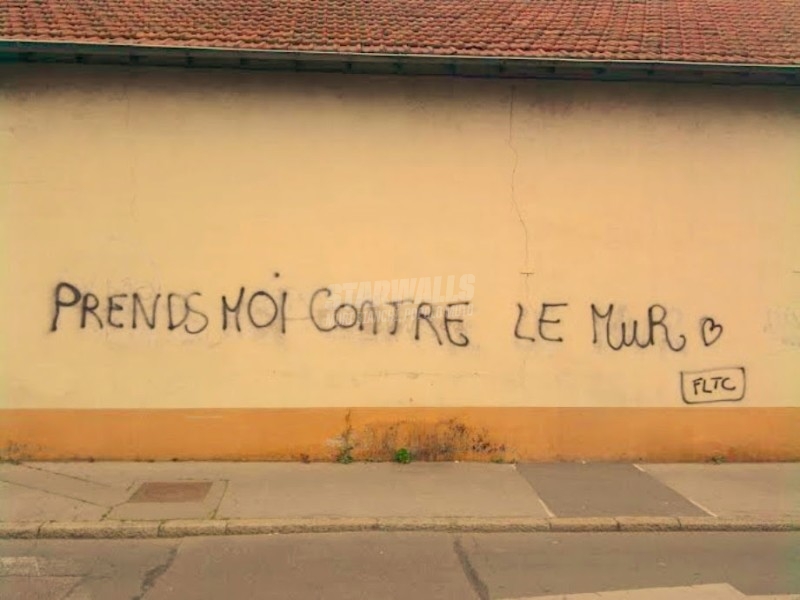 PRENDS MOi CONTRE LE MuR
FLTC
STARWALLS